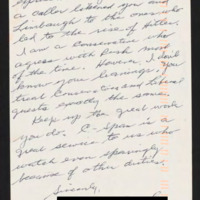 a caller likened you and
Limbaugh to the ones who
led to the rise of Hitler.
I am a conservative who
agrees with Rush most
of the time. However, I don't
know your leanings, you
treat Conservative and liberal
guests exactly the same.
Keep up the great work
you do. C-Span is a
great service to us who
watch even sparingly
because of other duties.
Sincerely,